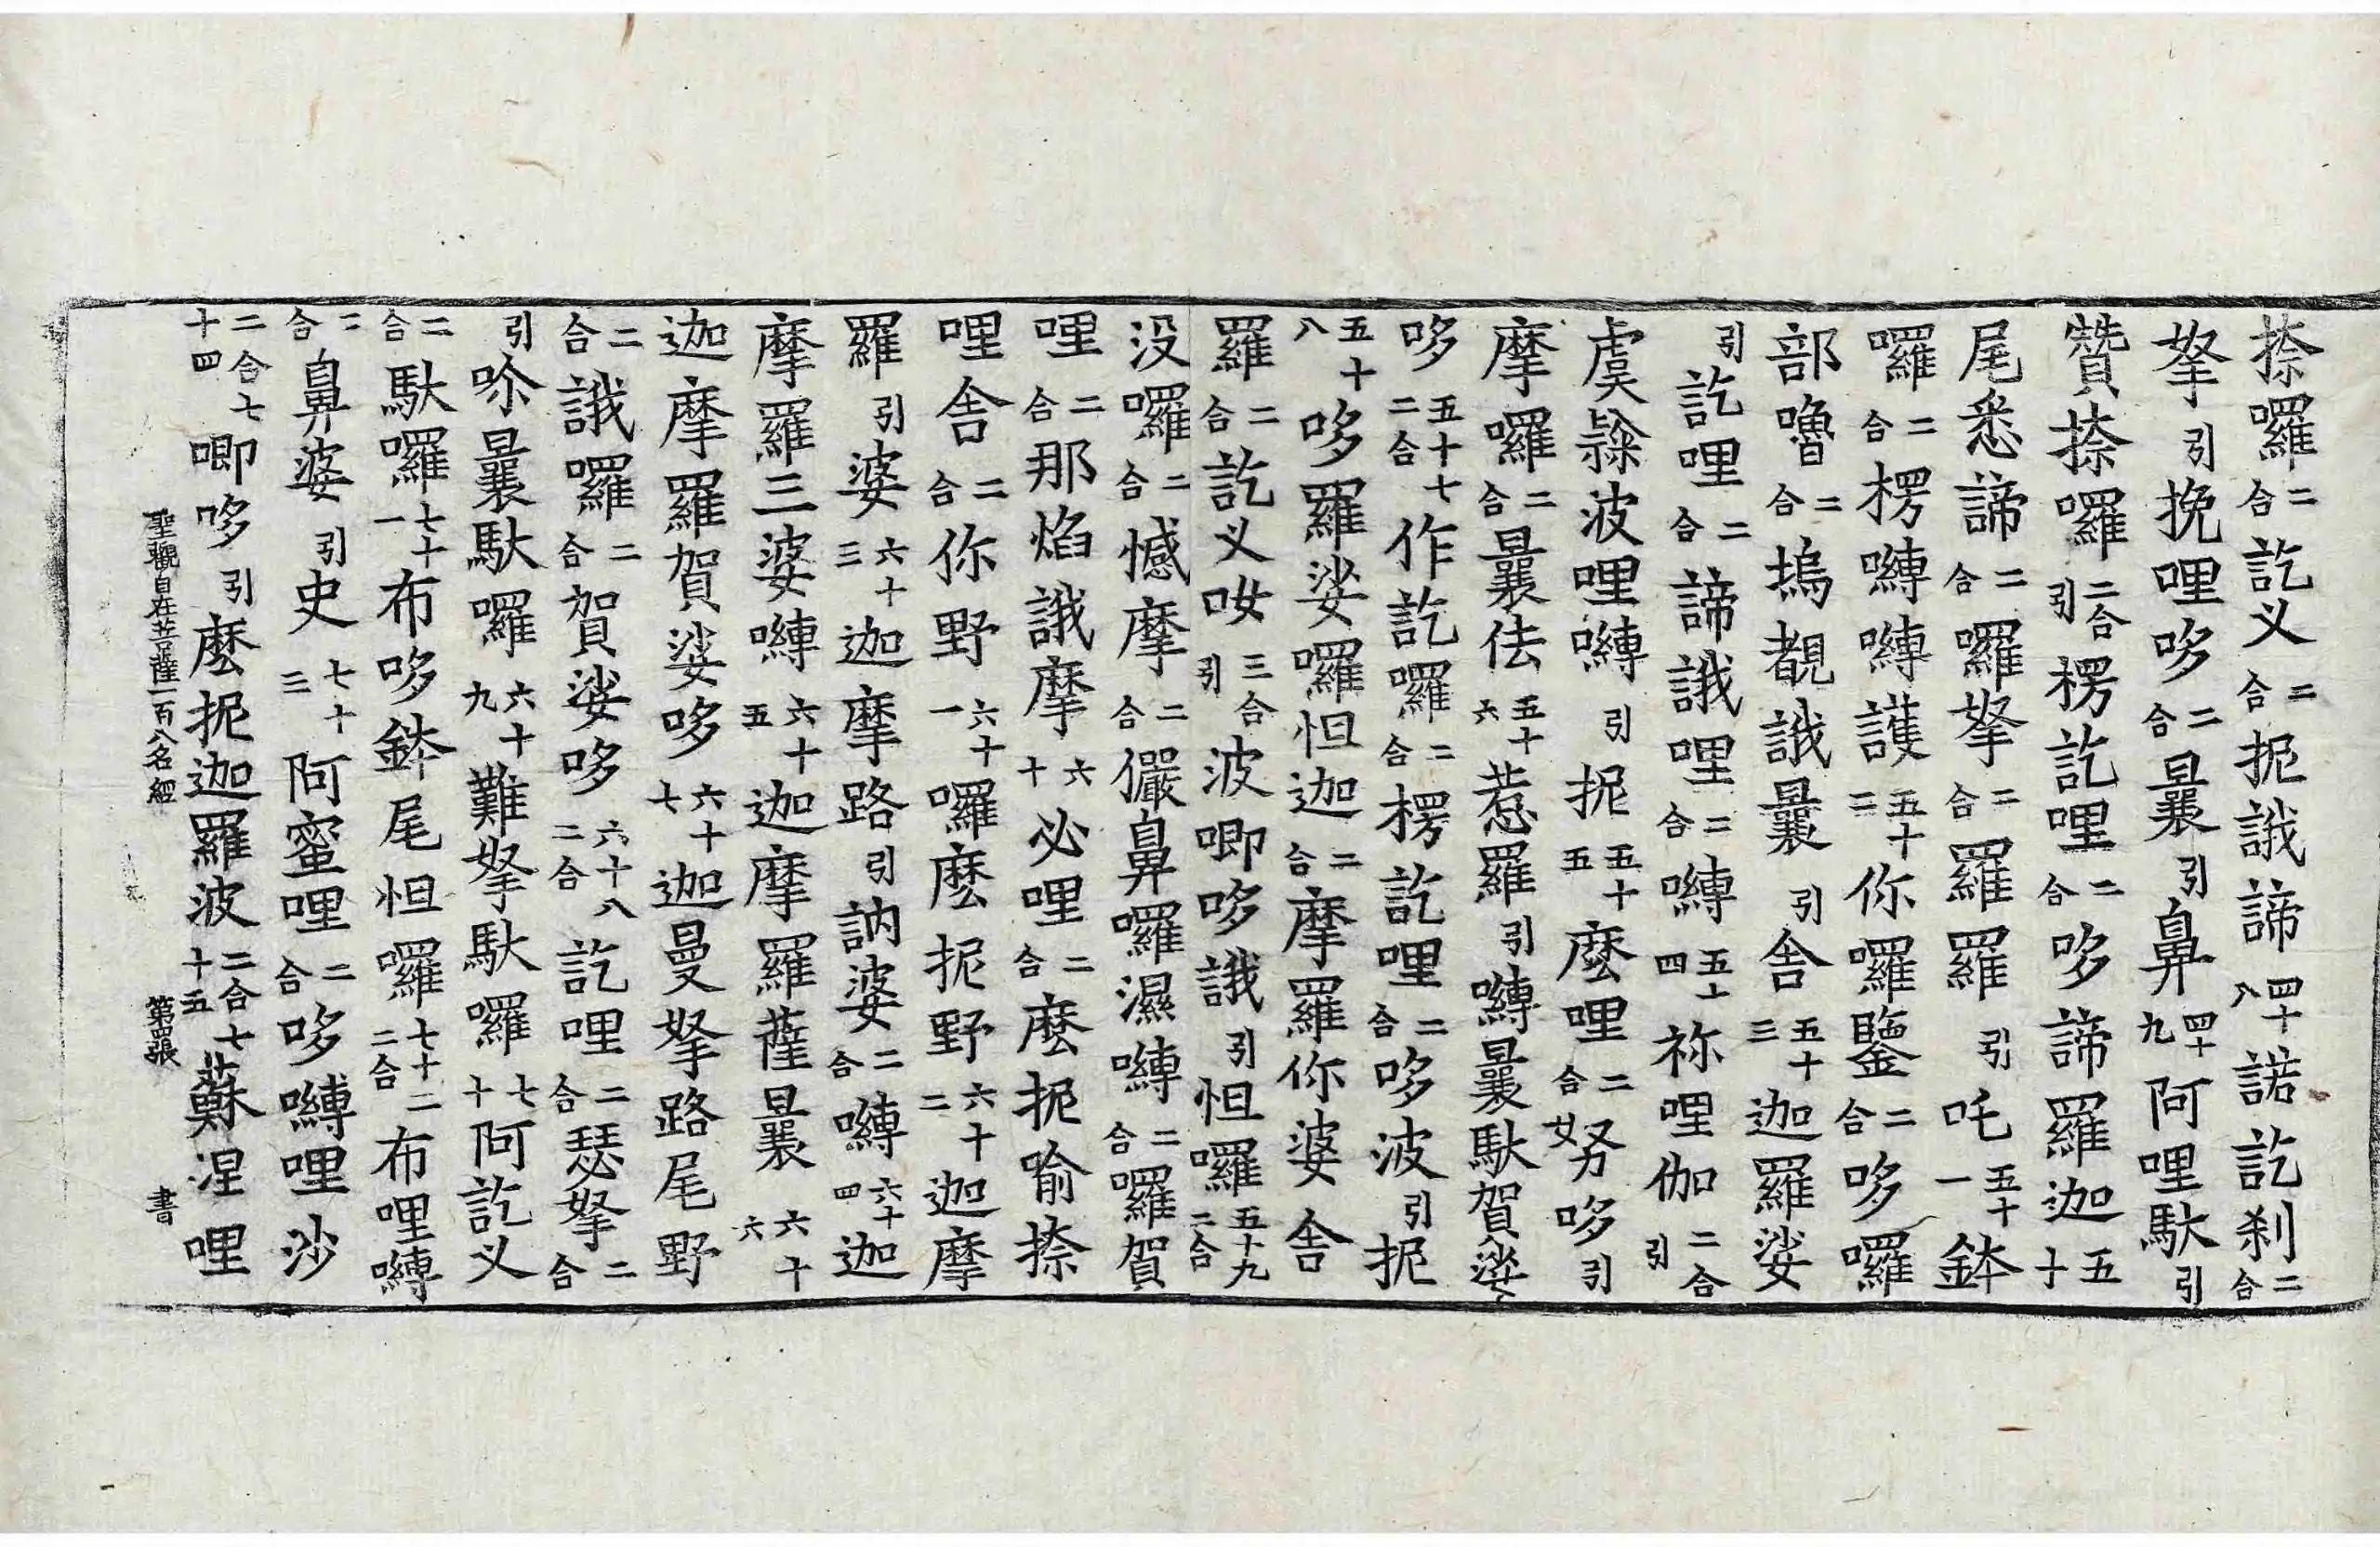 捺囉二合訖义二合抳誐諦四十八諾訖刹二合
拏引挽哩哆二合曩引鼻四十九阿哩馱引
贊捺囉二合引楞訖哩二合哆諦羅迦五十
尾悉諦二合囉拏二合羅羅引吒五十一鉢
囉二合楞嚩嚩護五十二你囉鑒二合哆囉
部嚕二合塢覩誐曩引舍五十三迦羅娑
引訖哩二合諦誐哩二合嚩五十四祢哩伽二合引
虞㶒波哩嚩引抳五十五麽哩二合努女哆引
摩囉二合曩佉五十六惹羅引嚩曩馱賀娑
哆五十七二合作訖囉二合楞訖哩二合哆波引抳
五十八哆羅娑囉怛迦二合摩羅你婆舍
羅二合訖义吹三合引波唧哆誐引怛囉五十九二合
没囉二合憾摩二合儼鼻囉濕嚩二合囉賀
哩二合那焰誐摩六十必哩二合麽抳喻捺
哩舍二合你野六十一囉麽抳野六十二迦摩
羅引婆六十三迦摩路引訥婆二合嚩六十四迦
摩羅三婆嚩六十五迦摩羅薩曩六十六
迦摩羅賀娑哆六十七迦曼拏路尾野
二合誐囉二合賀娑哆六十八二合訖哩二合瑟拏二合
引吤曩馱囉六十九難拏馱囉七十阿訖义
二合馱囉七十一布哆鉢尾怛囉七十二二合布哩嚩
二合鼻婆引史七十三阿蜜哩二合哆嚩哩沙
二合七十四唧哆引麽抳迦羅波二合七十五蘇涅哩
聖觀自在菩薩一百八名經 第張 書